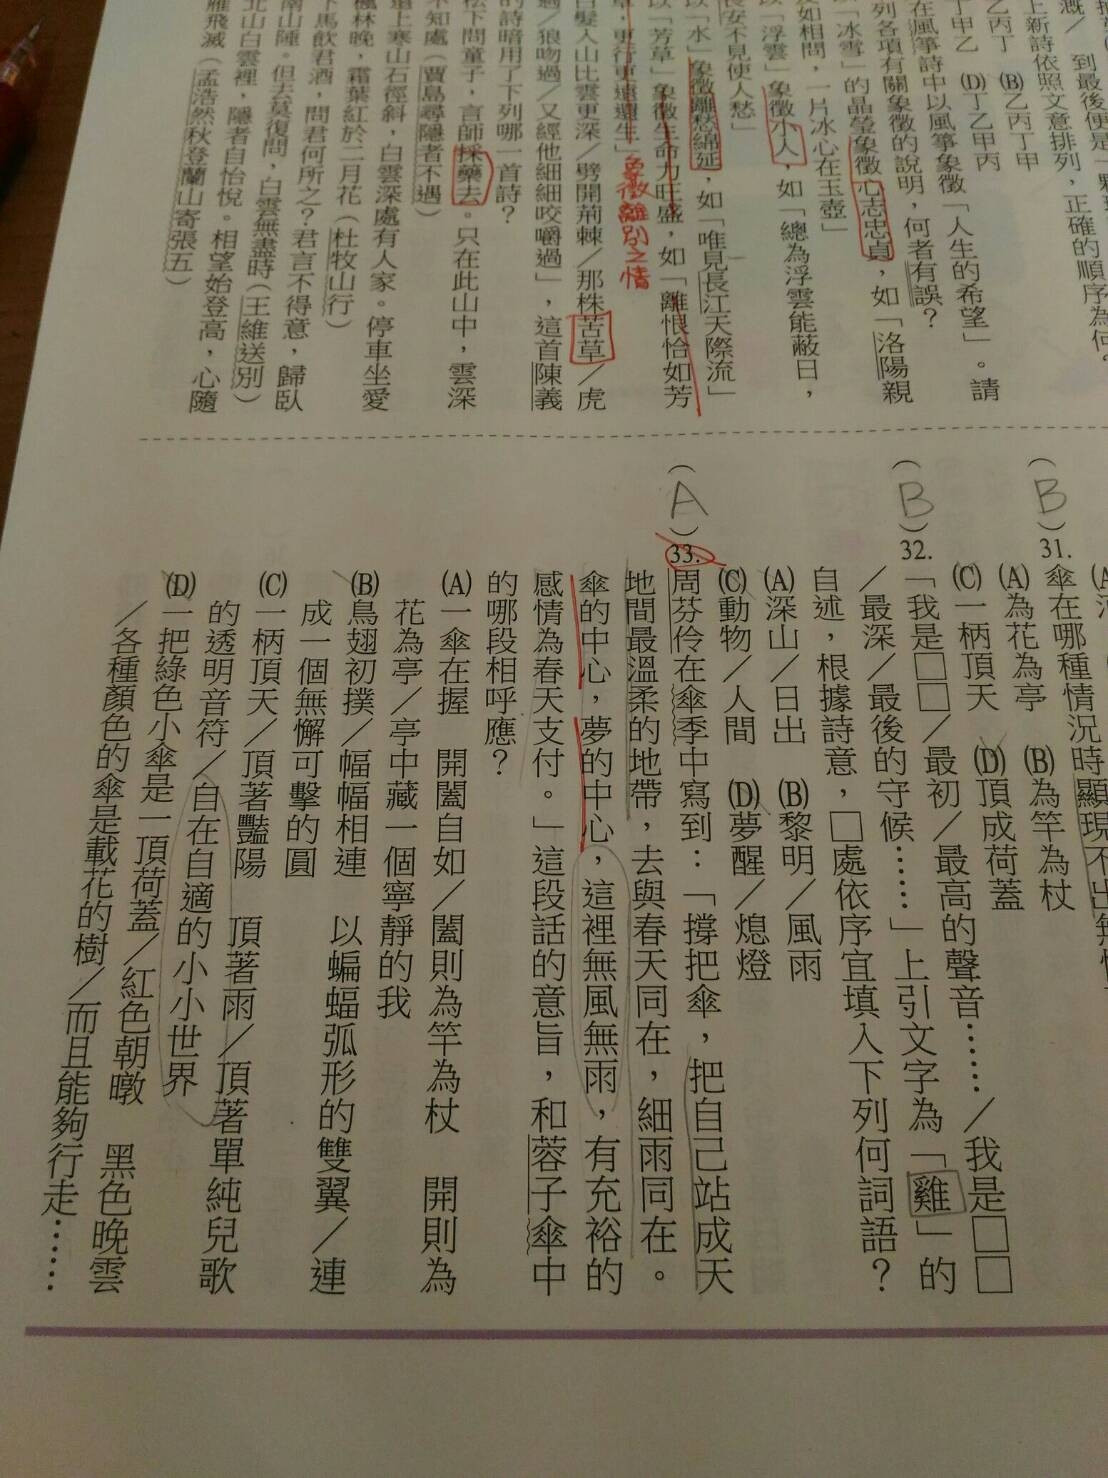 溉／ 到最後便是一顆
上新詩依照文意排列，正確的順序為何？
乙丙丁 (B)乙丙丁甲
丁甲乙 (D)丁乙甲丙
在風箏詩中以風箏象徵「人生的希望」。請
列各項有關象徵的說明，何者有誤？
「冰雪」的晶瑩象徵心志忠貞，如「洛陽親
友如相問，一片冰心在玉壺」
以「浮雲」象徵小人，如「總為浮雲能蔽日，
長安不見使人愁」
以「水」象徵離愁綿延，如「唯見長江天際流」
以「芳草」象徵生命力旺盛，如「離恨恰如芳
草，更行更遠還生」象徵離別之情
白髮入山比雲更深／劈開荊棘／那株苦草／虎
過／狼吻過／又經他細細咬嚼過」，這首陳義
的詩暗用了下列哪一首詩？
松下問童子，言師採藥去。只在此山中，雲深
不知處（賈島尋隱者不遇）
遠上寒山石徑斜，白雲深處有人家。停車坐愛
楓林晚，霜葉紅於二月花（杜牧山行）
下馬飲君酒，問君何所之？君言不得意，歸臥
南山陲。但去莫復問，白雲無盡時（王維送別）
北山白雲裡，隱者自怡悅。相望始登高，心隨
雁飛滅（孟浩然秋登蘭山寄張五）
(B)31.傘在哪種情況時顯現不出
(A)為花為亭 (B)為竿為杖
(C)一柄頂天 (D)頂成荷蓋
(B)32.「我是□□／最初／最高的聲音……／我是□□
／最深／最後的守候……」上引文字為「雞」的
自述，根據詩意，□處依序宜填入下列何詞語？
(A)深山／日出 (B)黎明／風雨
(C)動物／人間 (D)夢醒／熄燈
(A)33.周芬伶在傘季中寫到：「撐把傘，把自己站成天
地間最溫柔的地帶，去與春天同在，細雨同在。
傘的中心，夢的中心，這裡無風無雨，有充裕的
感情為春天支付。」這段話的意旨，和蓉子傘中
的哪段相呼應？
(A)一傘在握 開闔自如／闔則為竿為杖 開則為
花為亭／亭中藏一個寧靜的我
(B)鳥翅初撲／幅幅相連 以蝙蝠弧形的雙翼／連
成一個無懈可擊的圓
(C)一柄頂天／頂著豔陽 頂著雨／頂著單純兒歌
的透明音符／自在自適的小小世界
(D)一把綠色小傘是一頂荷蓋／紅色朝暾 黑色晚雲
／各種顏色的傘是載花的樹／而且能夠行走……